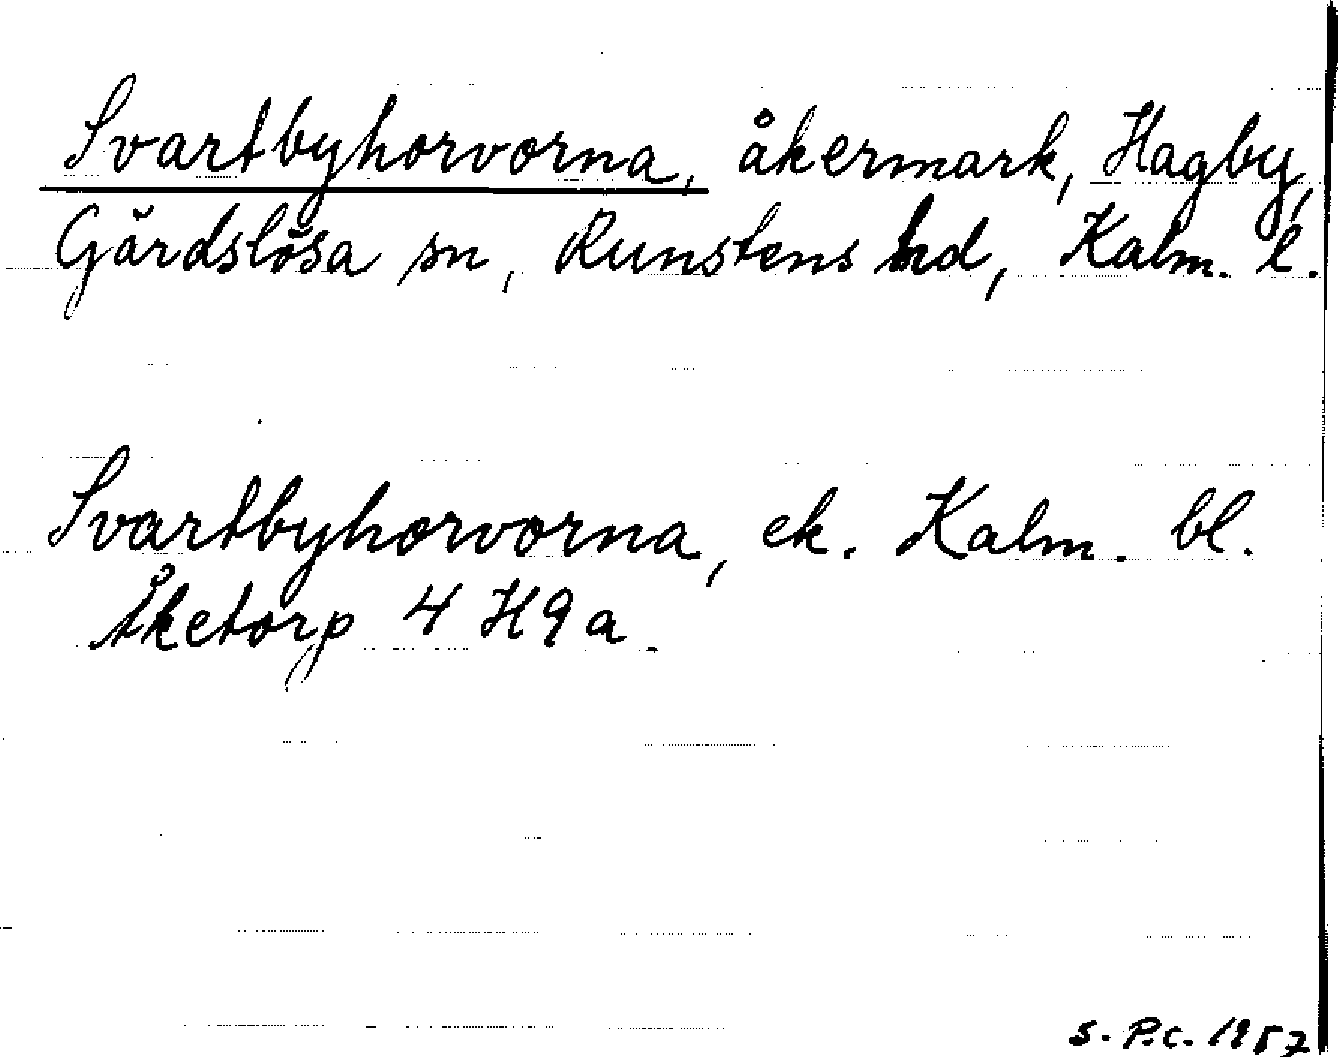 Svartbyhorvorna, åkermark, Hagby,
Gärdslösa sn, Runstens hd, Kalm. l.
Svartbyhorvorna, ek. Kalm. bl.
Åketorp 4 H 9 a.
S. P.C. 1957